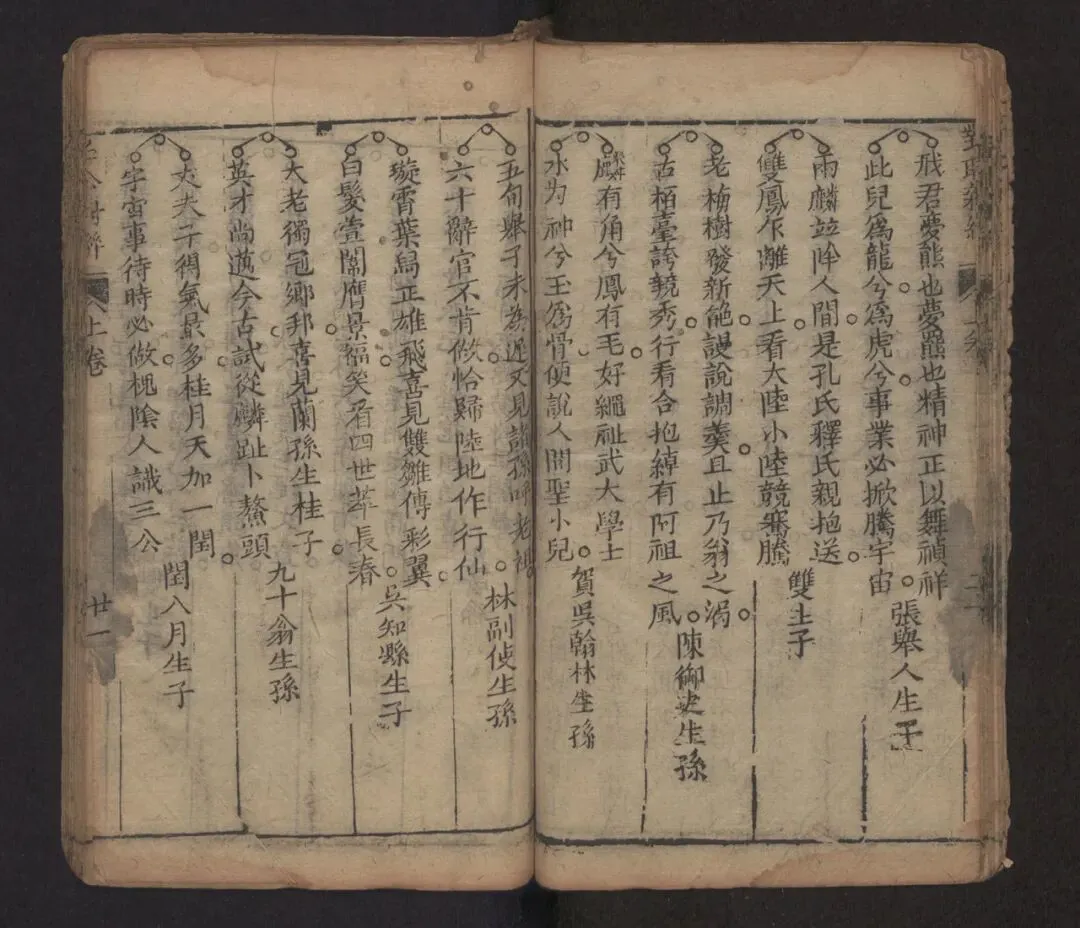 飛君夢熊也夢羆也精神正以舞禎祥
此兒爲龍兮爲虎兮事業必掀騰宇宙
張舉人生子
兩麟並降人間是孔氏釋氏親抱送
雙鳳乍離天上看大陸小陸競騫騰
雙生子
老梅樹發新葩謾說調羹且止乃翁之渴
古栢臺誇競秀行看合抱綽有阿祖之風
陳御史生孫
麟有角兮鳳有毛好繩祉武大學士
水为神兮玉爲骨便說人間聖小兒
賀吳翰林生孫
五旬舉子未為遲又見諸孫呼老祖
六十辭官不肯做恰歸陸地作行仙
林副使生孫
璇霄葉舄正雄飛喜見雙雛傳彩翼
白髮萱闈膺景福矣看四世萃長春
吳知縣生子
大老獨冠鄉邦喜見蘭孫生桂子
英才尚邁今古試從麟趾卜鰲頭
九十翁生孫
大夫子得氣最多桂月天加一閏
字宙事待時必做槐陰人識三公
閏八月生子
上卷
廿一